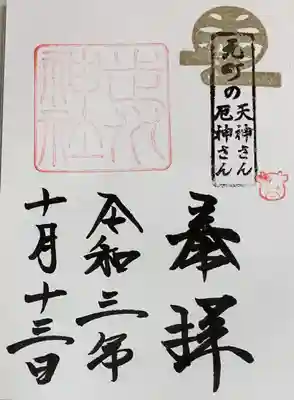 元町の
天神さん
厄神さん
走水
神社
奉拝
令和三年
十月十三日